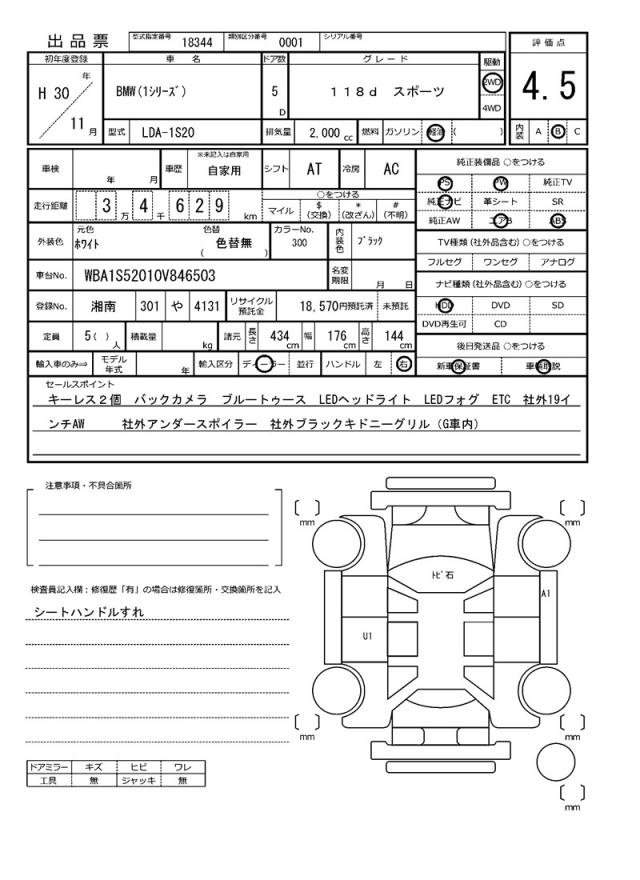 出品票 型式指定番号 18344 類別区分番号 0001 シリアル番号
評価点
初年度登録 車 名 ドア数 グレード 駆動
H 30 年 11 月 BMW(1シリーズ) 5 D 118d スポーツ 2WD 4WD
4.5
型式 LDA-1S20 排気量 2,000 cc 燃料 ガソリン 軽油 ( )
内装 A B C
車検 年 月 車歴 ※未記入は自家用 自家用 シフト AT 冷房 AC
純正装備品 ○をつける
PS PW 純正TV
純正ナビ 革シート SR
純正AW エアB ABS
走行距離 3 万 4 千 6 2 9 km
○をつける
マイル $ (交換) * (改ざん) # (不明)
外装色 元色 ホワイト 色替 ( 色替無 ) カラーNo. 300 内装色 ブラック
TV種類 (社外品含む) ○をつける
フルセグ ワンセグ アナログ
車台No. WBA1S52010V846503 名変期限 月 日
ナビ種類 (社外品含む) ○をつける
HDD DVD SD
DVD再生可 CD
登録No. 湘南 301 や 4131 リサイクル預託金 18,570円預託済 未預託
定員 5( ) 人 積載量 kg 諸元 長さ 434 cm 幅 176 cm 高さ 144 cm
後日発送品 ○をつける
新車保証書 車輌取説
輸入車のみ⇒ モデル年式 年 輸入区分 ディーラー 並行 ハンドル 左 右
セールスポイント
キーレス2個 バックカメラ ブルートゥース LEDヘッドライト LEDフォグ ETC 社外19イ
ンチAW 社外アンダースポイラー 社外ブラックキドニーグリル (G車内)
注意事項・不具合箇所
mm
mm
検査員記入欄:修復歴「有」の場合は修復箇所・交換箇所を記入
シートハンドルすれ
トビ石
A1
U1
mm
mm
ドアミラー キズ ヒビ ワレ
工具 無 ジャッキ 無
mm